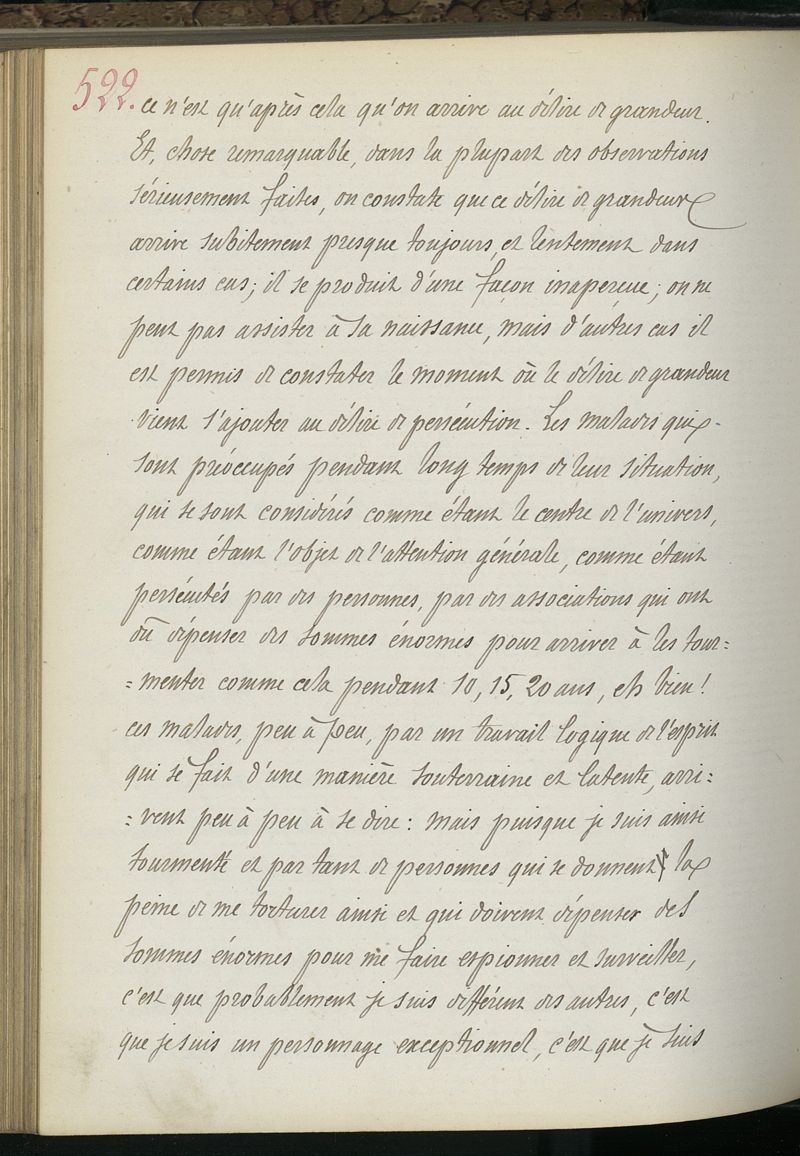 522. ce n'est qu'après cela qu'on arrive au délire de grandeur.
Et, chose remarquable, dans la plupart des observations
sérieusement faites, on constate que ce délire de grandeur
arrive subitement presque toujours, et lentement dans
certains cas; il se produit d'une façon inaperçue; on ne
peut pas assister à sa naissance, mais d'autres cas il
est permis de constater le moment où le délire de grandeur
vient s'ajouter au délire de persécution. Les malades qui
sont préoccupés pendant long temps de leur situation,
qui se sont considérés comme étant le centre de l'univers,
comme étant l'objet de l'attention générale, comme étant
persécutés par des personnes, par des associations qui ont
dû dépenser des sommes énormes pour arriver à les tour=
=menter comme cela pendant 10, 15, 20 ans, eh bien!
ces malades, peu à peu, par un travail logique de l'esprit
qui se fait d'une manière souterraine et latente, arri=
=vent peu à peu à se dire: mais puisque je suis ainsi
tourmenté et par tant de personnes qui se donnent la
peine de me torturer ainsi et qui doivent dépenser des
sommes énormes pour me faire espionner et surveiller,
c'est que probablement je suis différent des autres, c'est
que je suis un personnage exceptionnel, c'est que je suis